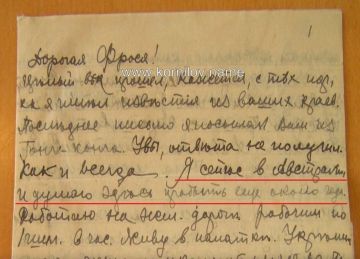 1
Дорогая Фрося!
www.kornilov.name
Целый век прошел, кажется, с тех пор,
как я имел известия из ваших краев.
Последнее письмо я посылал Вам из
Гонг Конга. Увы, ответа не получил.
Как и всегда. Я сейчас в Австралии
и думаю здесь пробыть еще около года.
Работаю на жел. дороге рабочим по
в час. Живу в палатке.